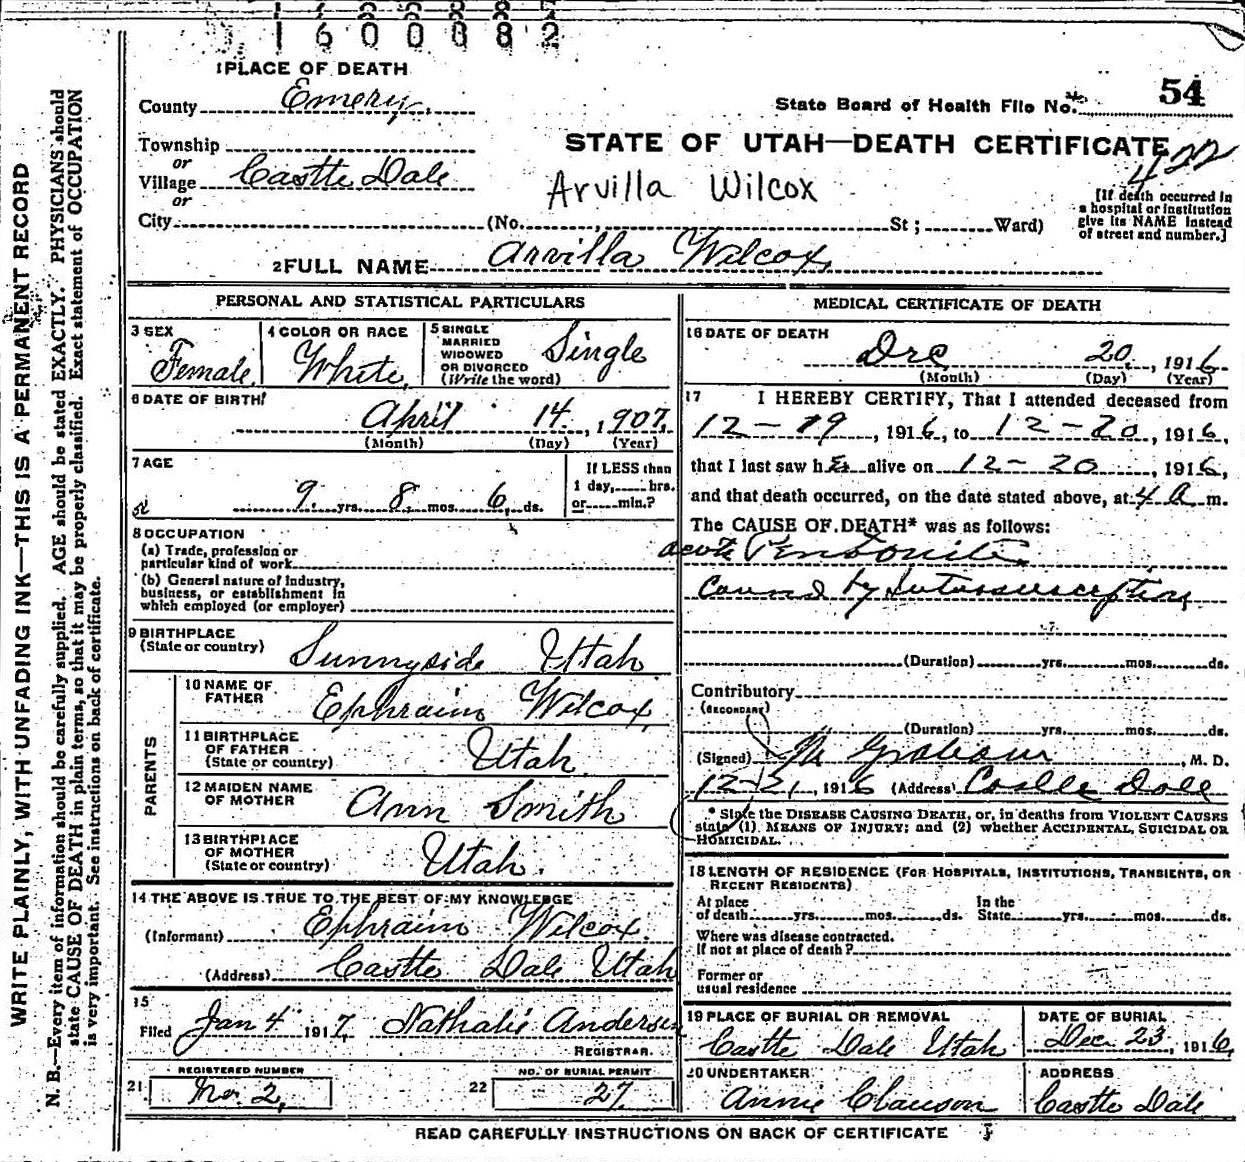 1600882
1 PLACE OF DEATH
County Emery
State Board of Health File No. 54
Township
or
Village Castle Dale
or
City (No. , St ; Ward)
STATE OF UTAH—DEATH CERTIFICATE
422
Arvilla Wilcox
[If death occurred in
a hospital or institution
give its NAME instead
of street and number.]
2 FULL NAME Arvilla Wilcox
PERSONAL AND STATISTICAL PARTICULARS
3 SEX
Female
4 COLOR OR RACE
White
5 SINGLE
MARRIED
WIDOWED
OR DIVORCED
(Write the word)
Single
6 DATE OF BIRTH
April 14, 1907
(Month) (Day) (Year)
7 AGE
9 yrs. 8 mos. 6 ds.
If LESS than
1 day, hrs.
or min.?
8 OCCUPATION
(a) Trade, profession or
particular kind of work
(b) General nature of industry,
business, or establishment in
which employed (or employer)
9 BIRTHPLACE
(State or country)
Sunnyside Utah
PARENTS
10 NAME OF
FATHER
Ephraim Wilcox
11 BIRTHPLACE
OF FATHER
(State or country)
Utah
12 MAIDEN NAME
OF MOTHER
Ann Smith
13 BIRTHPLACE
OF MOTHER
(State or country)
Utah.
14 THE ABOVE IS TRUE TO THE BEST OF MY KNOWLEDGE
(Informant) Ephraim Wilcox
(Address) Castle Dale Utah
15
Filed Jan 4 1917, Nathalie Andersen
REGISTRAR.
REGISTERED NUMBER
21 No. 2,
NO. OF BURIAL PERMIT
22 27
MEDICAL CERTIFICATE OF DEATH
16 DATE OF DEATH
Dec 20, 1916
(Month) (Day) (Year)
17 I HEREBY CERTIFY, That I attended deceased from
12-19, 1916, to 12-20, 1916,
that I last saw her alive on 12-20, 1916,
and that death occurred, on the date stated above, at 4 A m.
The CAUSE OF DEATH* was as follows:
acute Peritonitis
Caused by Intussusception
(Duration) yrs. mos. ds.
Contributory
(SECONDARY)
(Duration) yrs. mos. ds.
(Signed) M. D.
12-21, 1916 (Address) Castle Dale
* State the DISEASE CAUSING DEATH, or, in deaths from VIOLENT CAUSES
state (1) MEANS OF INJURY; and (2) whether ACCIDENTAL, SUICIDAL OR
HOMICIDAL.
18 LENGTH OF RESIDENCE (FOR HOSPITALS, INSTITUTIONS, TRANSIENTS, OR
RECENT RESIDENTS)
At place
of death yrs. mos. ds.
In the
State yrs. mos. ds.
Where was disease contracted.
If not at place of death?
Former or
usual residence
19 PLACE OF BURIAL OR REMOVAL
Castle Dale Utah
DATE OF BURIAL
Dec. 23, 1916,
20 UNDERTAKER
Annie Clawson
ADDRESS
Castle Dale
READ CAREFULLY INSTRUCTIONS ON BACK OF CERTIFICATE
WRITE PLAINLY, WITH UNFADING INK—THIS IS A PERMANENT RECORD
N. B.—Every item of information should be carefully supplied. AGE should be stated EXACTLY. PHYSICIANS should
state CAUSE OF DEATH in plain terms, so that it may be properly classified. Exact statement of OCCUPATION
is very important. See instructions on back of certificate.